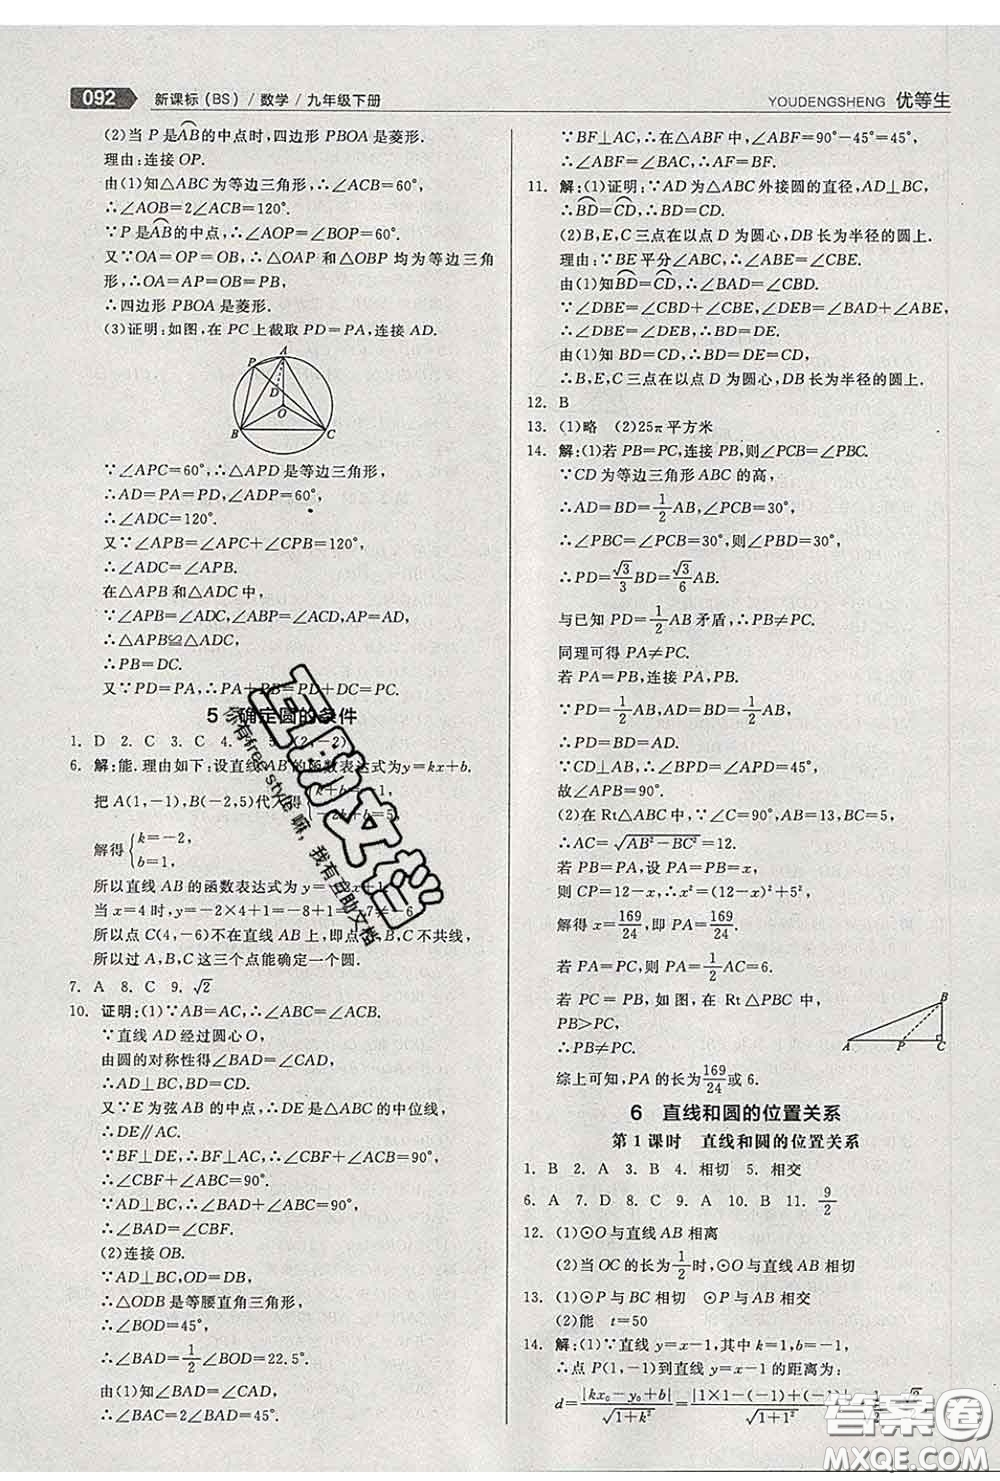 092 新课标(BS)/数学/九年级下册
YOUDENGSHENG 优等生
(2)当 P 是AB的中点时,四边形 PBOA 是菱形.
理由:连接 OP.
由(1)知△ABC 为等边三角形,∴∠ACB=60°,
∴∠AOB=2∠ACB=120°.
∵P 是AB的中点,∴∠AOP=∠BOP=60°.
又∵OA=OP=OB,∴△OAP 和△OBP 均为等边三角形,∴OA=AP=OB=PB.
∴四边形 PBOA 是菱形.
(3)证明:如图,在 PC 上截取 PD=PA,连接 AD.
A
P
D
O
B
C
∵∠APC=60°,∴△APD 是等边三角形,
∴AD=PA=PD,∠ADP=60°,
∴∠ADC=120°.
又∵∠APB=∠APC+∠CPB=120°,
∴∠ADC=∠APB.
在△APB 和△ADC 中,
∵∠APB=∠ADC,∠ABP=∠ACD,AP=AD,
∴△APB≌△ADC.
∴PB=DC.
又∵PD=PA,∴PA+PB=PD+DC=PC.
5 确定圆的条件
1. D 2. C 3. C 4. 5. (2,-2)
6. 解:能.理由如下:设直线 AB 的函数表达式为 y=kx+b.
把 A(1,-1),B(-2,5)代入得 {k+b=-1, -2k+b=5,
解得{k=-2, b=1,
所以直线 AB 的函数表达式为 y=-2x+1.
当 x=4 时,y=-2×4+1=-8+1=-7≠-6.
所以点 C(4,-6)不在直线 AB 上,即点 A,B,C 不共线,
所以过 A,B,C 这三个点能确定一个圆.
7. A 8. C 9. √2
10. 证明:(1)∵AB=AC,∴∠ABC=∠ACB.
∵直线 AD 经过圆心 O,
由圆的对称性得∠BAD=∠CAD,
∴AD⊥BC,BD=CD.
又∵E 为弦 AB 的中点,∴DE 是△ABC 的中位线,
∴DE∥AC.
∵BF⊥DE,∴BF⊥AC,∴∠CBF+∠ACB=90°.
∵AD⊥BC,∴∠BAD+∠ABC=90°,
∴∠BAD=∠CBF.
(2)连接 OB.
∵AD⊥BC,OD=DB,
∴△ODB 是等腰直角三角形,
∴∠BOD=45°,
∴∠BAD=1/2∠BOD=22.5°.
由(1)知∠BAD=∠CAD,
∴∠BAC=2∠BAD=45°.
∵BF⊥AC,∴在△ABF 中,∠ABF=90°-45°=45°,
∴∠ABF=∠BAC,∴AF=BF.
11. 解:(1)证明:∵AD 为△ABC 外接圆的直径,AD⊥BC,
∴BD=CD,∴BD=CD.
(2)B,E,C 三点在以点 D 为圆心,DB 长为半径的圆上.
理由:∵BE 平分∠ABC,∴∠ABE=∠CBE.
由(1)知BD=CD,∴∠BAD=∠CBD.
∵∠DBE=∠CBD+∠CBE,∠DEB=∠BAD+∠ABE,
∴∠DBE=∠DEB,∴DB=DE.
由(1)知 BD=CD,∴DB=DE=DC.
∴B,E,C 三点在以点 D 为圆心,DB 长为半径的圆上.
12. B
13. (1)略 (2)25π 平方米
14. 解:(1)若 PB=PC,连接 PB,则∠PCB=∠PBC.
∵CD 为等边三角形 ABC 的高,
∴AD=BD=1/2AB,∠PCB=30°,
∴∠PBC=∠PCB=30°,则∠PBD=30°,
∴PD=√3/3BD=√3/6AB.
与已知 PD=1/2AB 矛盾,∴PB≠PC.
同理可得 PA≠PC.
若 PA=PB,连接 PA,PB.
∵PD=1/2AB,
∴PD=BD=AD.
∴∠BPD=45°,∴∠APD=45°,
故∠APB=90°.
(2)在 Rt△ABC 中,∵∠C=90°,AB=13,BC=5,
∴AC=√(AB²-BC²)=12.
若 PB=PA,设 PA=PB=x,
则 CP=12-x,∴x²=(12-x)²+5²,
解得 x=169/24,即 PA=169/24.
若 PA=PC,则 PA=1/2AC=6.
若 PC=PB,如图,在 Rt△PBC 中,
PB>PC,
∴PB≠PC.
B
A P C
综上可知,PA 的长为169/24或 6.
6 直线和圆的位置关系
第 1 课时 直线和圆的位置关系
1. B 2. A 3. B 4. 相切 5. 相交
6. A 7. D 8. C 9. A 10. B 11. 9/2
12. (1)⊙O 与直线 AB 相离
(2)当 OC 的长为1/2时,⊙O 与直线 AB 相切
13. (1)⊙P 与 BC 相切 ⊙P 与 AB 相交
(2)能 t=50
14. 解:(1)∵直线 y=x-1,其中 k=1,b=-1,
∴点 P(1,-1)到直线 y=x-1 的距离为:
d=|kx₀-y₀+b|/√(1+k²)=|1×1-(-1)+(-1)|/√(1+1²)=1/√2=√2/2
互助文档
你有free style嘛,我有互助文档
答案圈
MXQE.COM